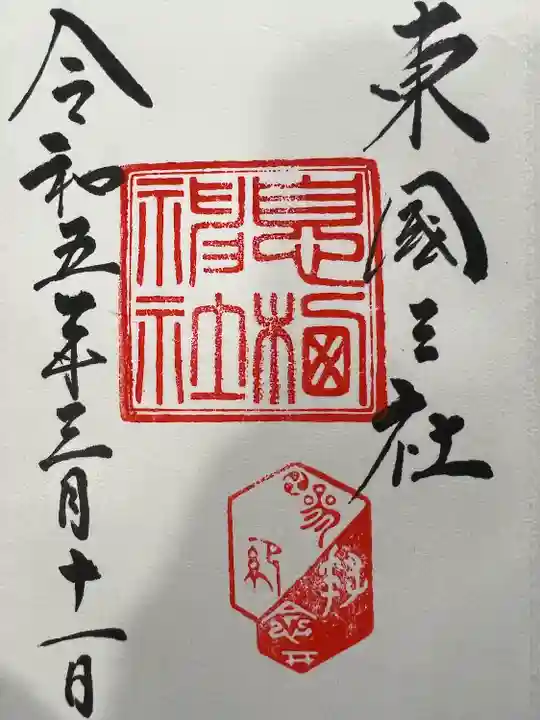 東國三社
息栖
神社
令和五年三月十一日